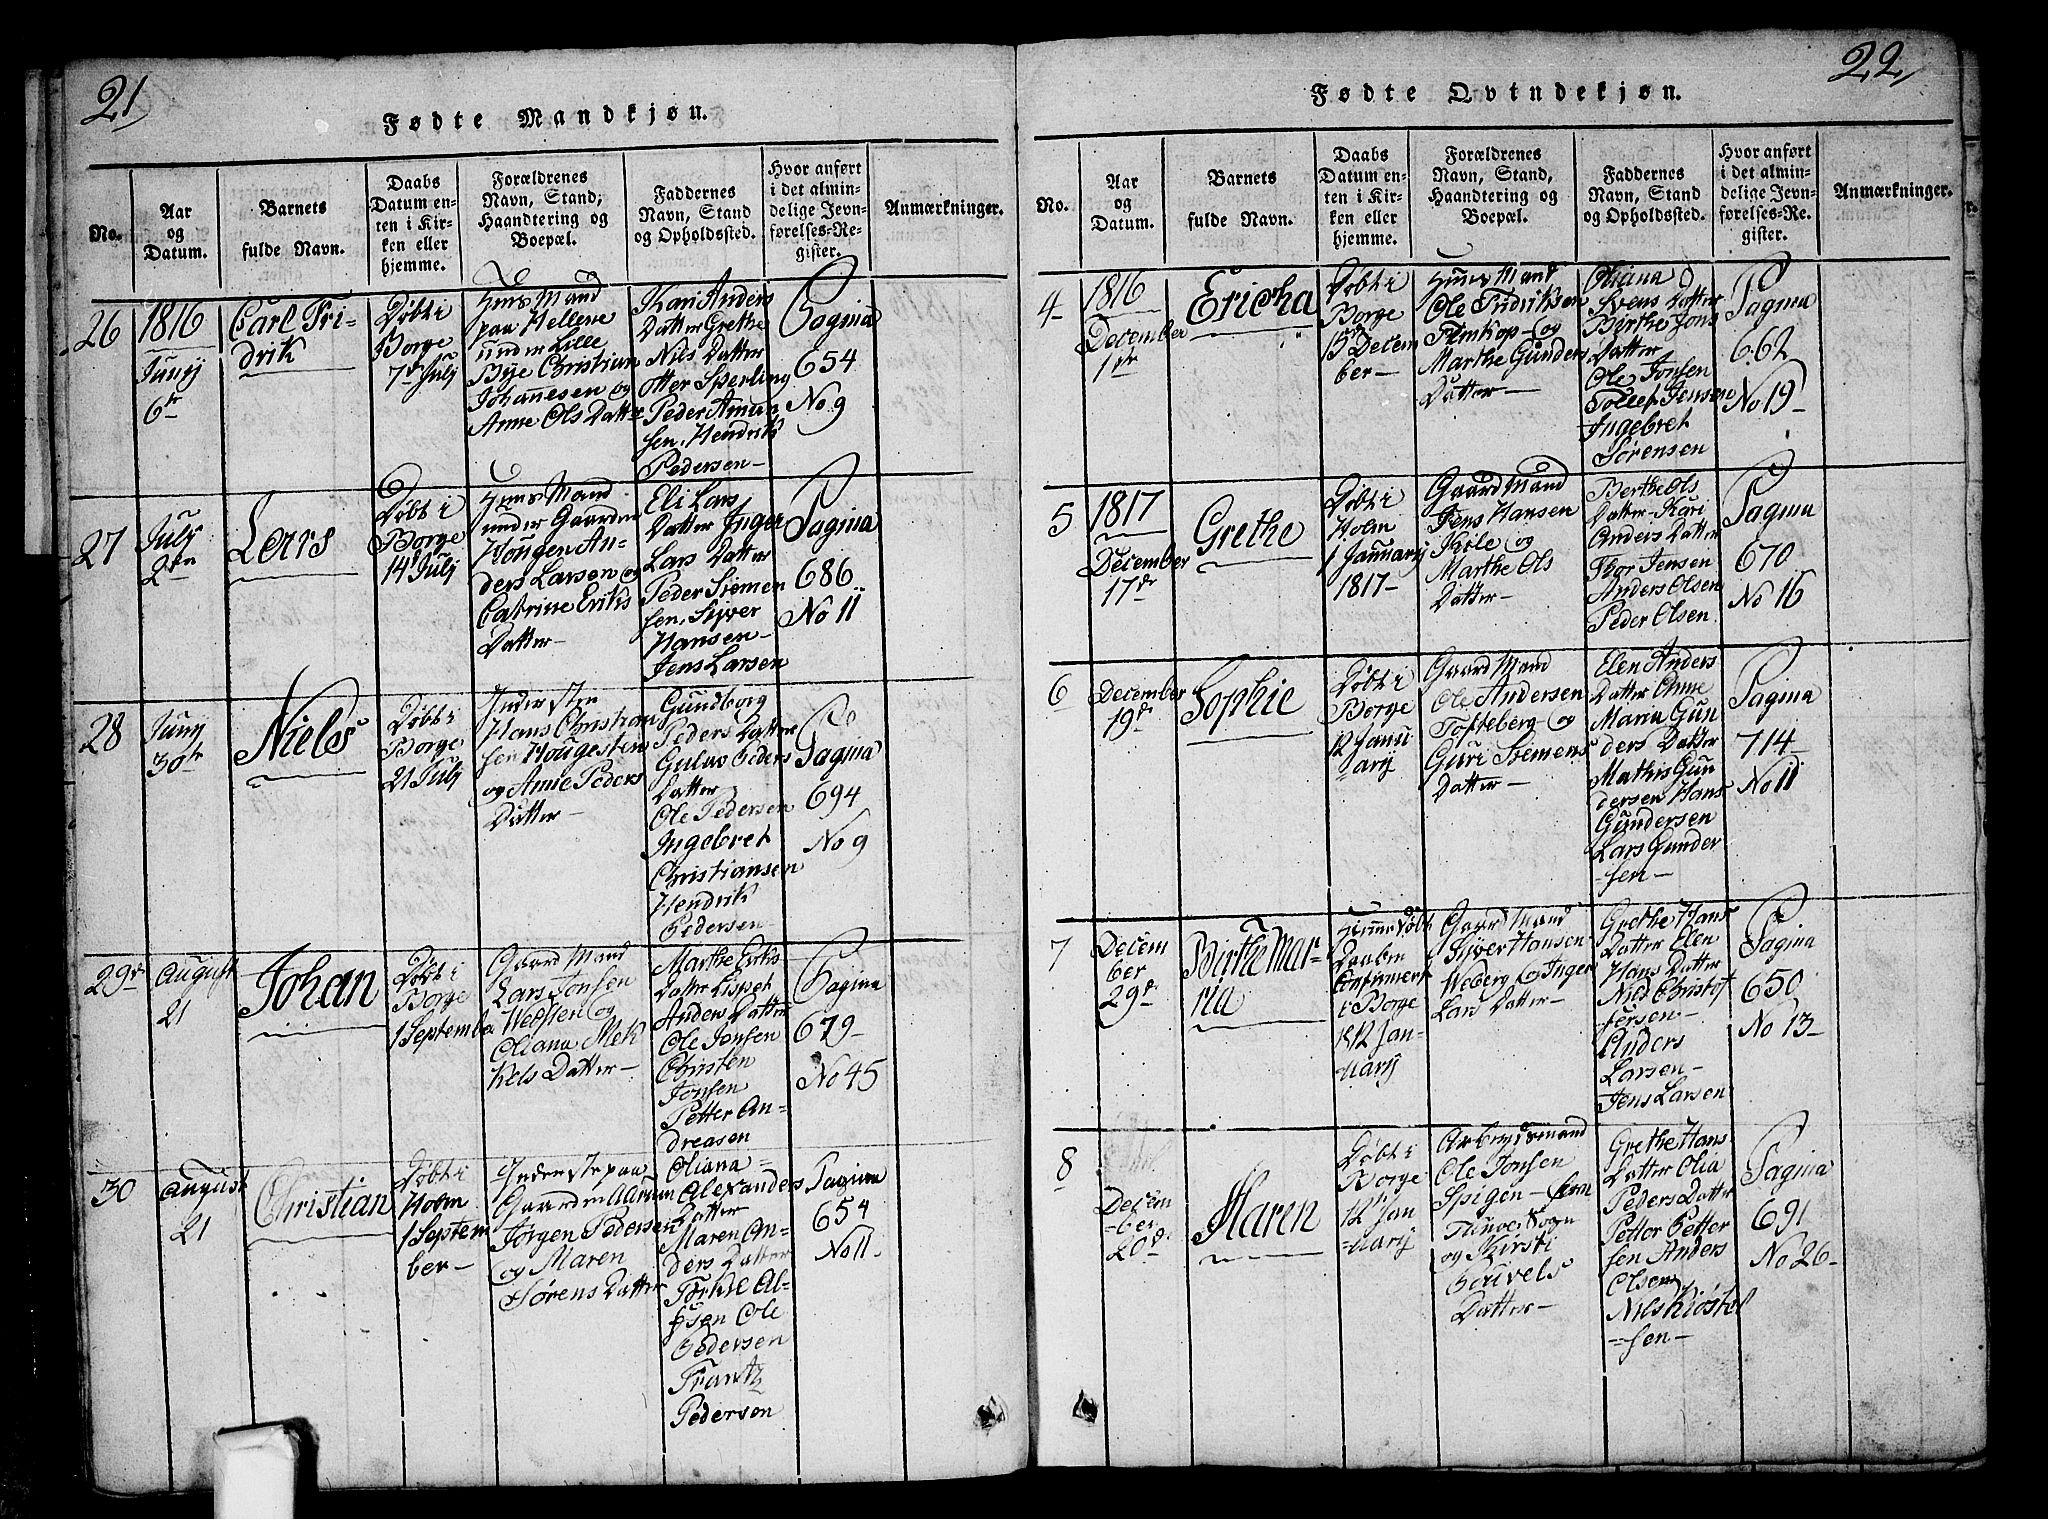 21,
Fødte Mandkjøn.
No.
Aar
og
Datum.
Barnets
fulde Navn.
Daabs
Datum en-
ten i Kir-
ken eller
hjemme.
Forældrenes
Navn, Stand,
Haandtering og
Boepæl.
Faddernes
Navn, Stand
og Opholdssted.
Hvor anført
i det almin-
delige Jevn-
førelses-Re-
gister.
Anmærkninger.
26
1816
Junij
6te
Carl Fri-
drik
Døbt i
Borge
7de Julj
Huus Mand
paa Hellene
under Lille
Bye Christian
Johannesen og
Anne Ols Datter
Kari Anders
Datter Grethe
Nils Datter
Otter Sperling
Peder Amun
sen, Hendrik
Pedersen-
Pagina
654
No 9
27
Julj
2den
Lars
Døbt i
Borge
14 Julj
Huus Mand
under Gaarden
Hougen An-
ders Larsen og
Catrine Eriks
Datter-
Eli Lars
Datter Inger
Lars Datter
Peder Siemen
sen, Sijver
Hansen-
Jens Larsen
Pagina
686
No 11
28
Junj
30te
Niels
Døbt i
Borge
21 Julj
Inderster
Hans Christian
sen Hougesten
og Anne Peders
Datter-
Gundborg
Peders Datter
Peders
Datter
Ole Pedersen
Ingebret
Christiansen
Hendrik
Pedersen
Pagina
694
No 9
29
August
21
Johan
Døbt i
Borge
1 Septembe
Gaard Mand
Lars Jonsen
og
Oliana Mek
kels Datter-
Marthe Eriks
Datter Lispet
Anders Datter
Ole Jonsen
Christen
Jonsen
Petter An-
dreasen
Pagina
679-
No 45
30
August
21
Christian
Døbt i
Holm
1 Septem
ber-
Inderste paa
Gaarden Aarum
Jørgen Pedersen
og Maren
Sørens Datter
Oliana
Alexanders
Datter
Maren An-
ders Datter
Ole
Pedersen
Frantz
Pedersen
Pagina
654
No 11.
22,
Fødte Qvindekjøn.
No.
Aar
og
Datum.
Barnets
fulde Navn.
Daabs
Datum en-
ten i Kir-
ken eller
hjemme.
Forældrenes
Navn, Stand,
Haandtering og
Boepæl.
Faddernes
Navn, Stand
og Opholdssted.
Hvor anført
i det almin-
delige Jevn-
førelses-Re-
gister.
Anmærkninger.
4
1816
December
1te
Ericha
Døbt i
Borge
15 Decem
ber-
Huus Mand
Ole Fridriksen
og
Marthe Gunders
Datter-
Oliana
Svens Datter
Birthe Jons
Datter
Ole Jonsen
Tollef Jensen
Ingebret
Sørensen
Pagina
662
No 19-
5
1817
December
17de
Grethe
Døbt i
Holm
1 Januarij
1817-
Gaard Mand
Jens Hansen
Kiøle og
Marthe Ols
Datter-
Berthe Ols
Datter-Kari
Anders Datter
Thor Jensen
Anders Olsen
Peder Olsen
Pagina
670
No 16
6
December
19de
Sophie
Døbt i
Borge
12 Janu
arij
Gaard Mand
Ole Andersen
Tofteberg og
Guri Siemens
Datter-
Elen Anders
Datter Anne
Maria Gun
ders Datter
Mathis Gun
dersen Hans
Gundersen
Lars Gunder
=sen-
Pagina
714-
No 11
7
Decem
ber
29de
Birthe Mar-
ria
Hiemme døbt
Daaben
Confirmert
i Borge
12 Jan-
uarij
Gaard Mand
Sijver Hansen
Weberg og Inger
Lars Datter-
Grethe Hans
Datter Elen
Hans Datter
Nils Christof
fersen-
Anders
Larsen-
Jens Larsen
Pagina
650
No 13-
8
Decem
=ber
20de
Maren
Døbt i
Borge
12 Jan
=uarij
Arbeydsmand
Ole Jonsen
Spigen-
Tunøe Sogn
og Kirsti
Povels
Datter-
Grethe Hans
Datter Olia
Peders Datter
Petter Petter
sen Anders
Olsen
Nils Kiøstel
=sen-
Pagina
691
No 26-